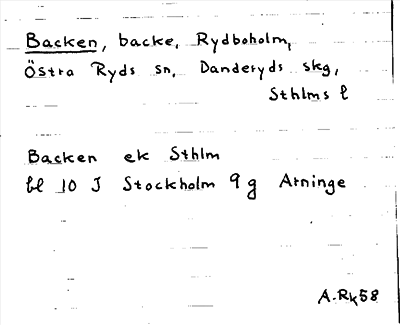 Backen, backe, Rydboholm,
Östra Ryds sn, Danderyds skg,
Sthlms l
Backen ek Sthlm
bl 10 J Stockholm 9 g Arninge
A.Rk58